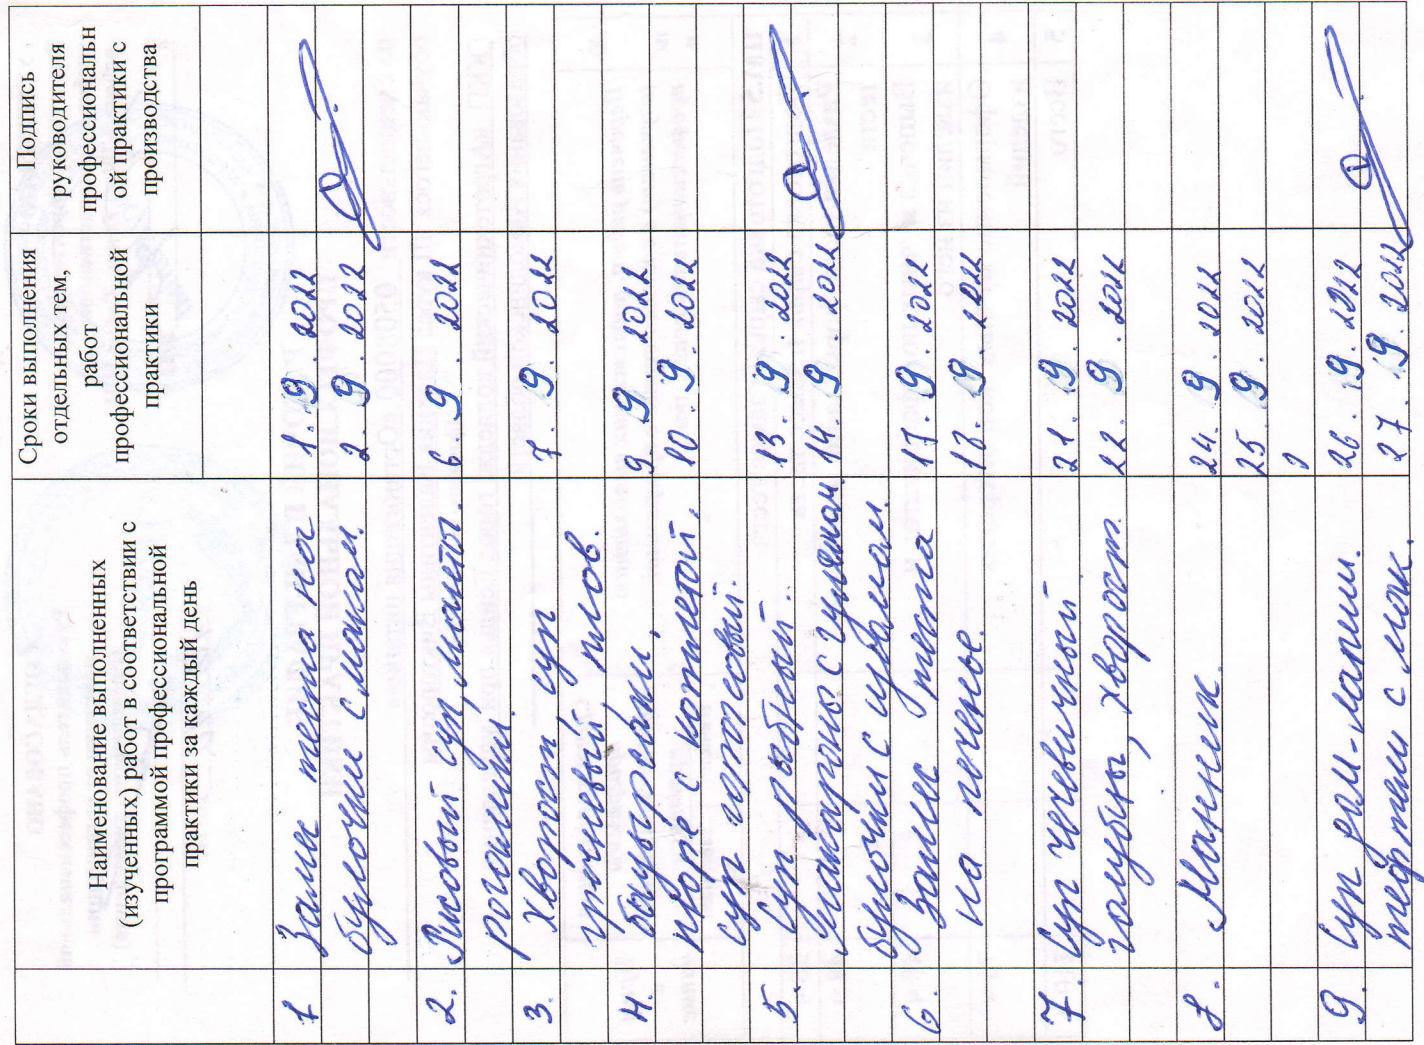 Наименование выполненных
(изученных) работ в соответствии с
программой профессиональной
практики за каждый день
Сроки выполнения
отдельных тем,
работ
профессиональной
практики
Подпись
руководителя
профессиональн
ой практики с
производства
1 Замес теста на 1.9 2022
булочки с маком. 2.9.2022
2. Рисовый суп, манты. 6.9.2022
рогалики.
3. Хворост, суп 7.9.2022
гречневый, плов.
4. бауырсаки, 9.9.2022
пюре с котлетой, 10.9.2022
суп
5. Суп рыбный. 13.9.2022
макароны с гуляшом 14.9.2022
булочки с
6. Замес теста 17.9.2022
на печенье. 18.9.2022
7. Суп чечевичный 21.9.2022
голубцы, хворост. 22.9.2022
8. Манник 24.9.2022
25.9.2022
9. Суп рам-лапши. 26.9.2022
тефтели с мак. 27.9.2022